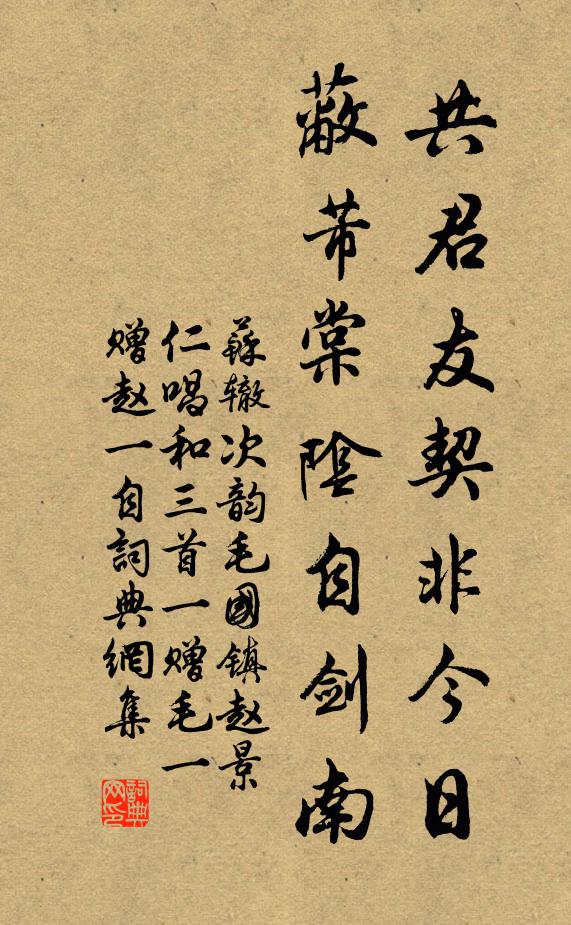 共君友契非今日
蔽芾棠陰自剑南
蘇辙次韵毛國镇赵景
仁唱和三首一赠毛一
赠赵一自詞典網集
詞典
网印